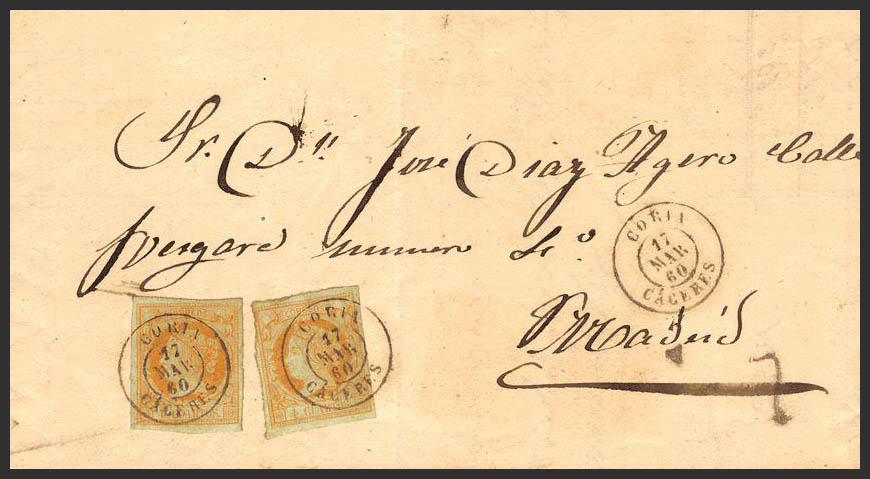 Sr. Dn. José Diaz Agero Calle
Vergara numero 4º
Madrid
CORIA
17
MAR
60
CÁCERES
CORIA
17
MAR
60
CÁCERES
CORIA
17
MAR
60
CÁCERES